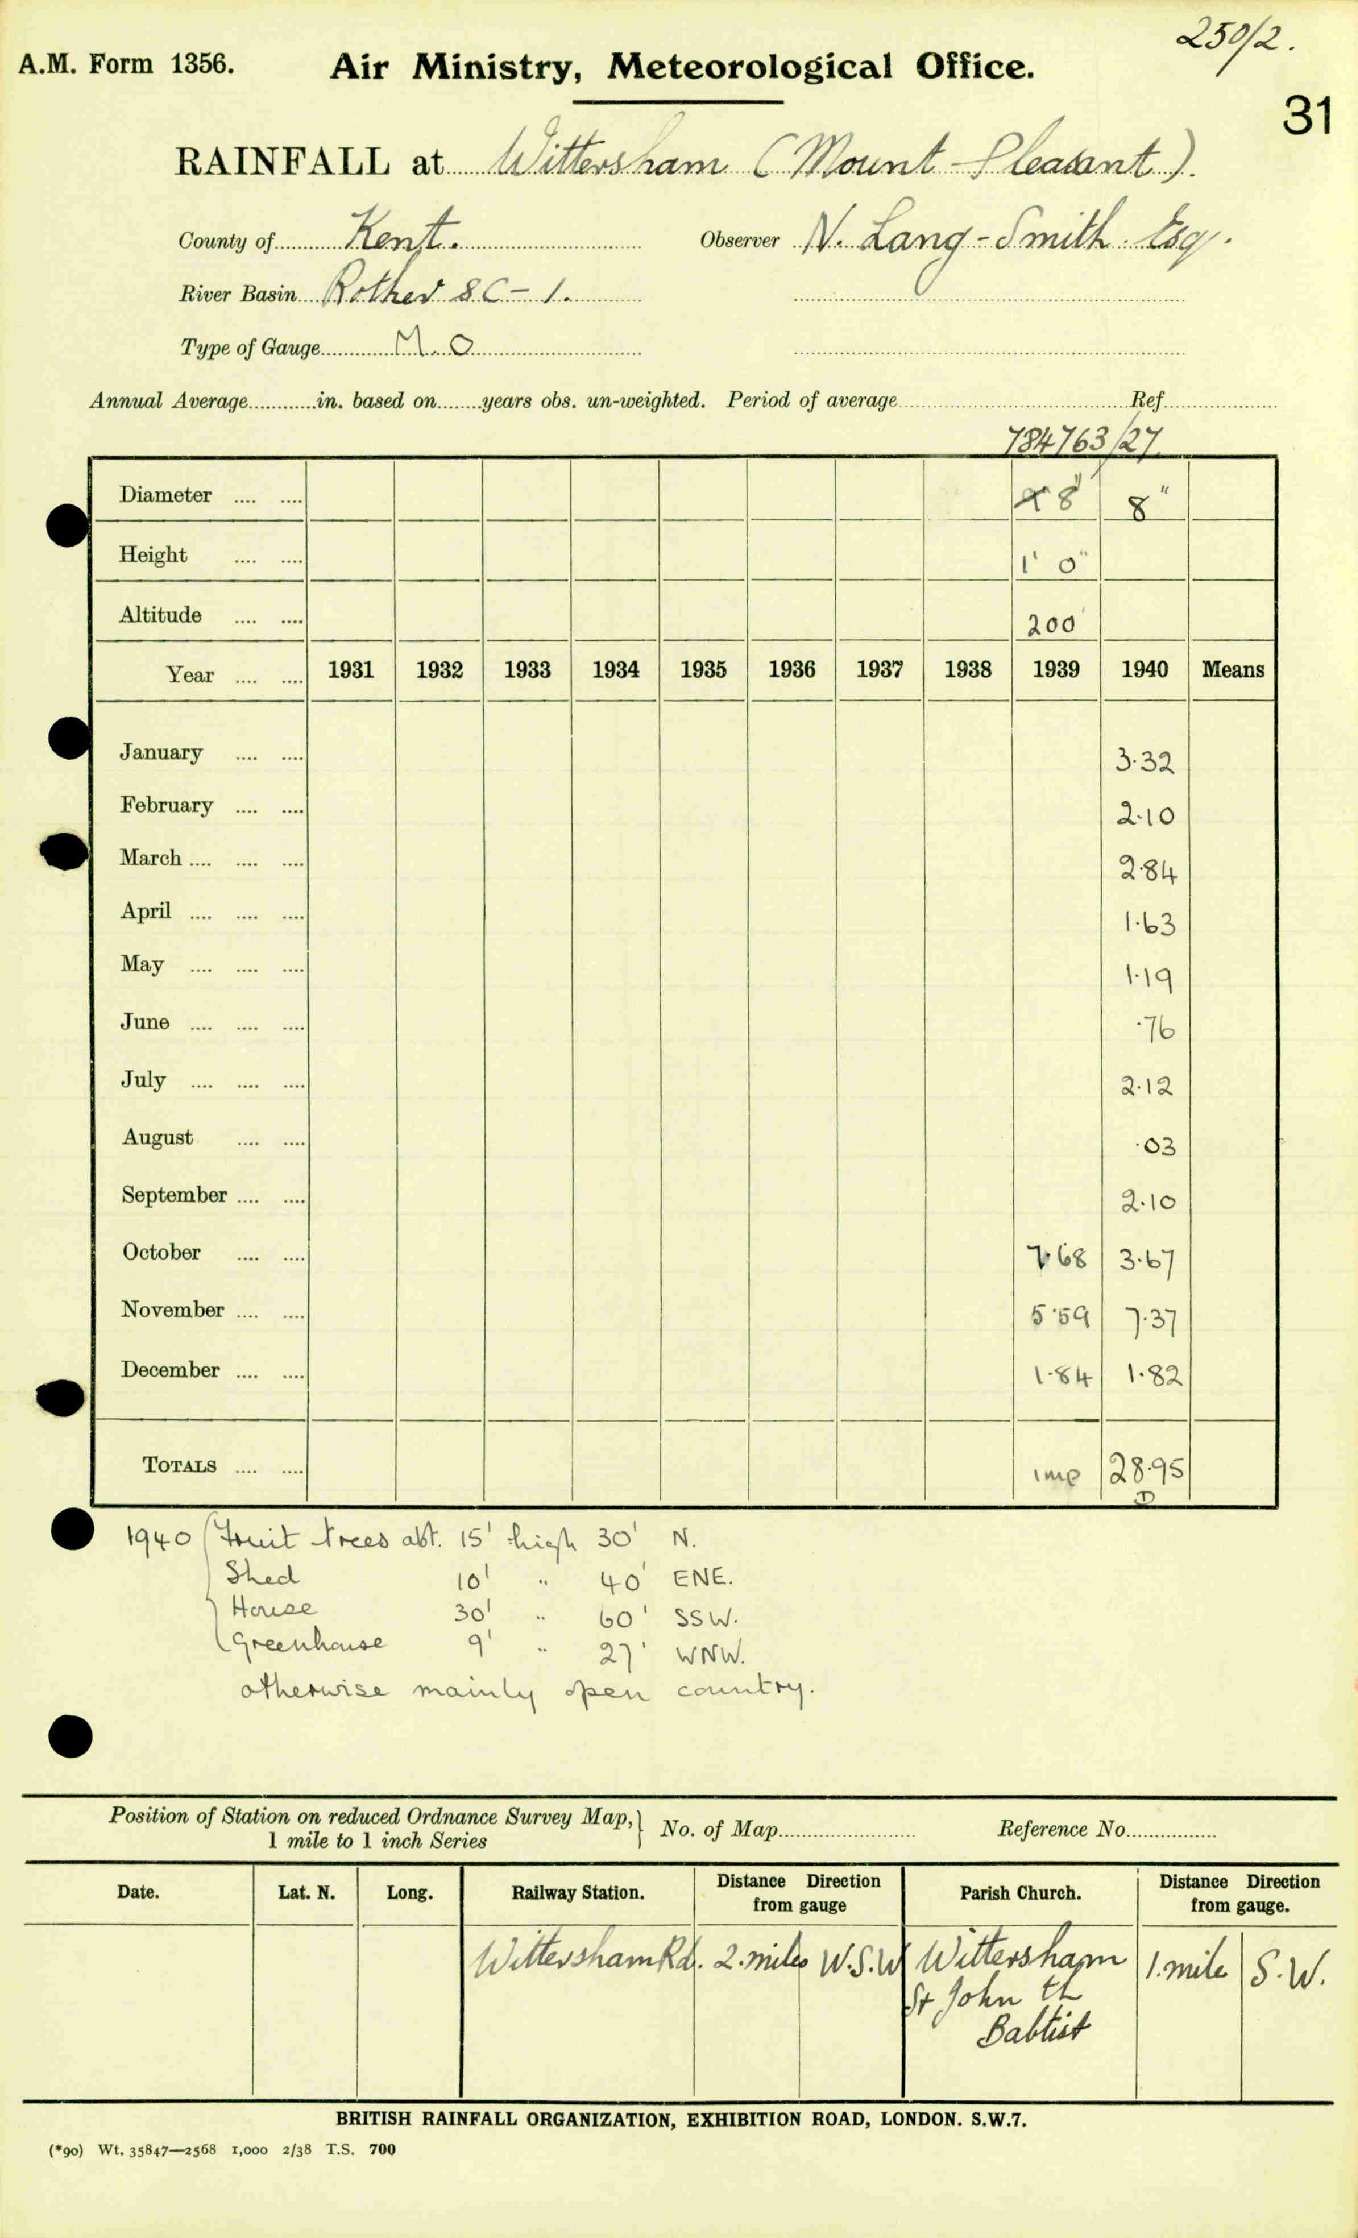 250/2.
A.M. Form 1356. Air Ministry, Meteorological Office.
31
RAINFALL at Wittersham (Mount Pleasant).
County of Kent. Observer N. Lang-Smith. Esq.
River Basin Rother 8C-1.
Type of Gauge M.O
Annual Average in. based on years obs. un-weighted. Period of average Ref
784763/27
Diameter 8" 8"
Height 1' 0"
Altitude 200'
Year 1931 1932 1933 1934 1935 1936 1937 1938 1939 1940 Means
January 3.32
February 2.10
March 2.84
April 1.63
May 1.19
June .76
July 2.12
August .03
September 2.10
October 7.68 3.67
November 5.59 7.37
December 1.84 1.82
TOTALS imp 28.95
D
1940 Fruit trees abt. 15' high 30' N.
Shed 10' " 40' ENE.
House 30' " 60' SSW.
Greenhouse 9' " 27' WNW.
otherwise mainly open country.
Position of Station on reduced Ordnance Survey Map, 1 mile to 1 inch Series No. of Map Reference No.
Date. Lat. N. Long. Railway Station. Distance Direction from gauge Parish Church. Distance Direction from gauge.
Wittersham Rd. 2.miles W.S.W Wittersham 1.mile S.W.
St John th
Babtist
BRITISH RAINFALL ORGANIZATION, EXHIBITION ROAD, LONDON. S.W.7.
(*90) Wt. 35847—2568 1,000 2/38 T.S. 700